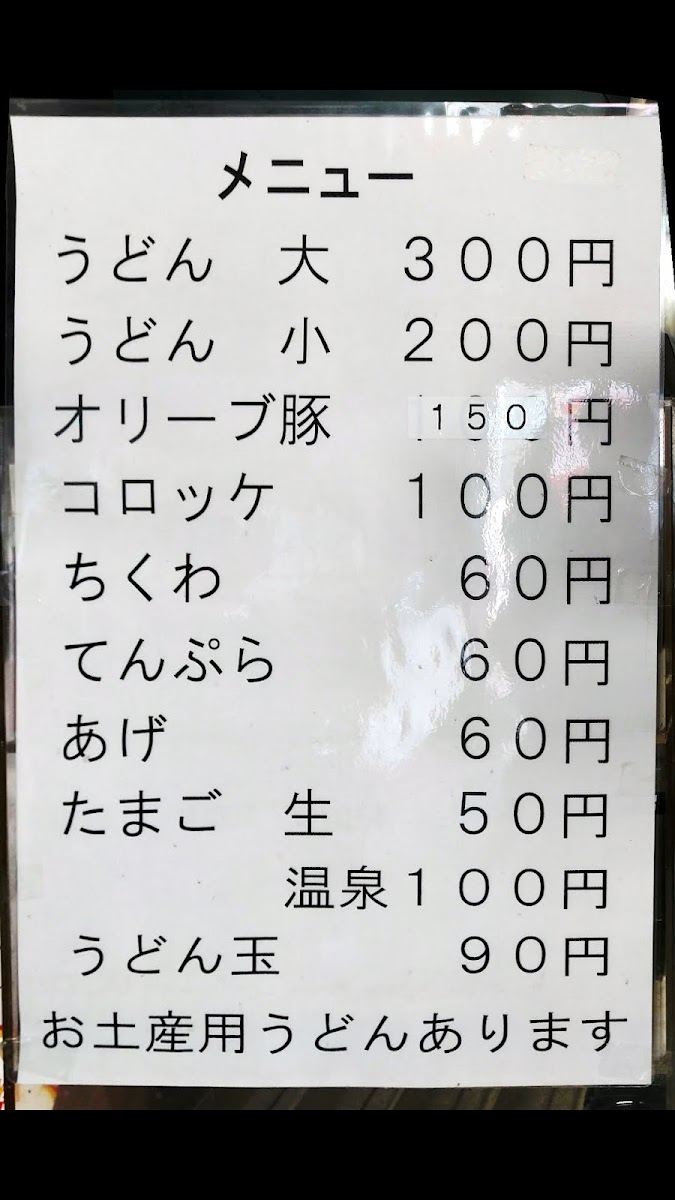 メニュー
うどん　大　３００円
うどん　小　２００円
オリーブ豚　１５０円
コロッケ　１００円
ちくわ　６０円
てんぷら　６０円
あげ　６０円
たまご　生　５０円
温泉１００円
うどん玉　９０円
お土産用うどんあります